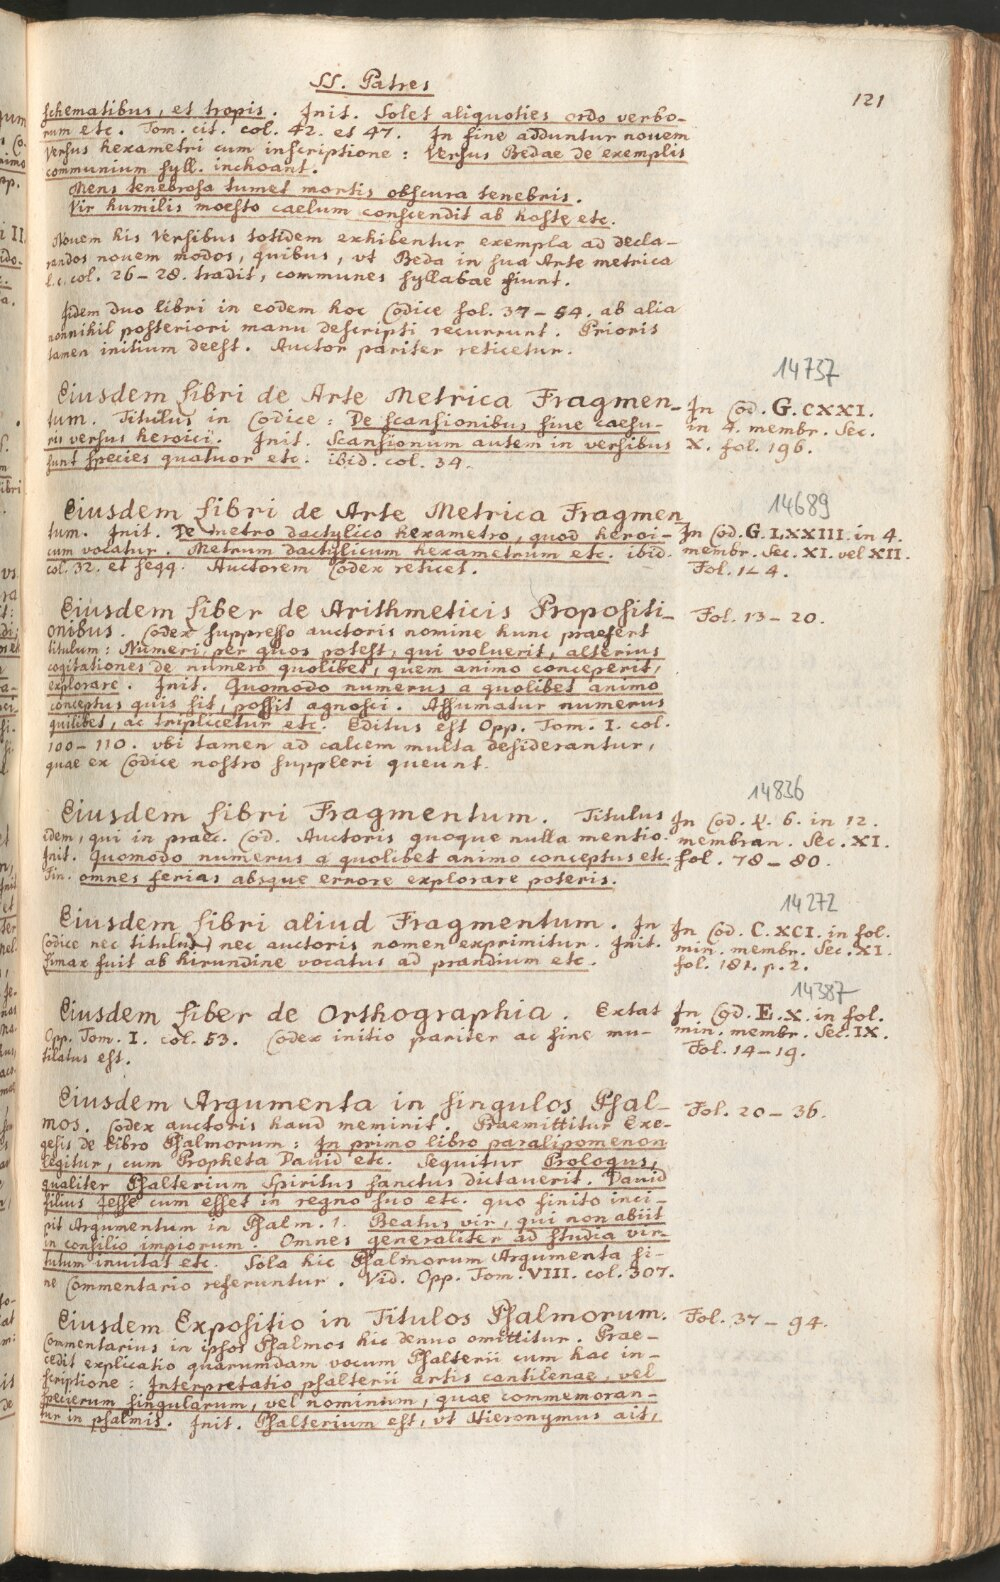 SS. Patres
121
schematibus, et tropis. Init. Solet aliquoties ordo verbo-
rum etc. Tom. cit. col. 42. et 47. In fine adduntur novem
Versus hexametri cum inscriptione: Versus Bedae de exemplis
communium syll. inchoant.
Mens tenebrosa tumet mortis obscura tenebris.
Vir humilis moesto caelum conscendit ab hoste etc.
Novem his Versibus totidem exhibentur exempla ad decla-
randos novem modos, quibus, vt Beda in sua Arte metrica
l.c. col. 26-28. tradit, communes syllabae fiunt.
Iidem duo libri in eodem hoc Codice fol. 37-54. ab alia
nonnihil posteriori manu descripti recurrunt. Prioris
tamen initium deest. Auctor pariter reticetur.
14737
Eiusdem Libri de Arte Metrica Fragmen-
tum. Titulus in Codice: De scansionibus sive caesu-
ris versus heroici. Init. Scansionum autem in versibus
sunt species quatuor etc. ibid. col. 34.
In Cod. G. CXXI.
in 4. membr. Sec.
X. fol. 196.
14689
Eiusdem Libri de Arte Metrica Fragmen
tum. Init. De metro dactylico hexametro, quod heroi-
cum vocatur. Metrum dactylicum hexametrum etc. ibid.
col. 32. et seqq. Auctorem Codex reticet.
In Cod. G. LXXIII. in 4.
membr. Sec. XI. vel XII.
Fol. 1-4.
Eiusdem Liber de Arithmeticis Propositi-
onibus. Codex suppresso auctoris nomine hunc praefert
titulum: Numeri, per quos potest, qui voluerit, alterius
cogitationes de numero quolibet, quem animo conceperit,
explorare. Init. Quomodo numerus a quolibet animo
conceptus quis sit, possit agnosci. Assumatur numerus
quilibet, ac triplicetur etc. Editus est Opp. Tom. I. col.
100-110. vbi tamen ad calcem multa desiderantur,
quae ex Codice nostro suppleri queunt.
Fol. 13-20.
14836
Eiusdem Libri Fragmentum. Titulus
idem, qui in praec. Cod. Auctoris quoque nulla mentio.
Init. Quomodo numerus a quolibet animo conceptus etc.
Fin. omnes ferias absque errore explorare poteris.
In Cod. 6. in 12.
membran. Sec. XI.
fol. 78-80.
14272
Eiusdem Libri aliud Fragmentum. In
Codice nec titulus nec auctoris nomen exprimitur. Init.
Limax fuit ab hirundine vocatus ad prandium etc.
In Cod. C. XCI. in fol.
min. membr. Sec. XI.
fol. 181. p. 2.
14387
Eiusdem Liber de Orthographia. Extat
Opp. Tom. I. col. 53. Codex initio pariter ac fine mu-
tilatus est.
In Cod. E. X. in fol.
min. membr. Sec. IX.
Fol. 14-19.
Eiusdem Argumenta in singulos Psal-
mos. Codex auctoris haud meminit. Praemittitur Exe-
gesis de Libro Psalmorum: In primo libro paralipomenon
legitur, cum Propheta David etc. Sequitur Prologus,
qualiter Psalterium Spiritus sanctus dictaverit. David
filius Jesse cum esset in regno suo etc. quo finito inci-
pit Argumentum in Psalm. 1. Beatus vir, qui non abiit
in consilio impiorum. Omnes generaliter ad studia vir-
tutum invitat etc. Sola hic Psalmorum Argumenta si-
ne Commentario referuntur. Vid. Opp. Tom. VIII. col. 307.
Fol. 20-36.
Eiusdem Expositio in Titulos Psalmorum.
Commentarius in ipsos Psalmos hic denuo omittitur. Prae-
cedit explicatio quarumdam vocum Psalterii cum hac in-
scriptione: Interpretatio psalterii artis cantilenae, vel
specierum singularum, vel nominum, quae commemoran-
tur in psalmis. Init. Psalterium est, vt Hieronymus ait,
Fol. 37-94.